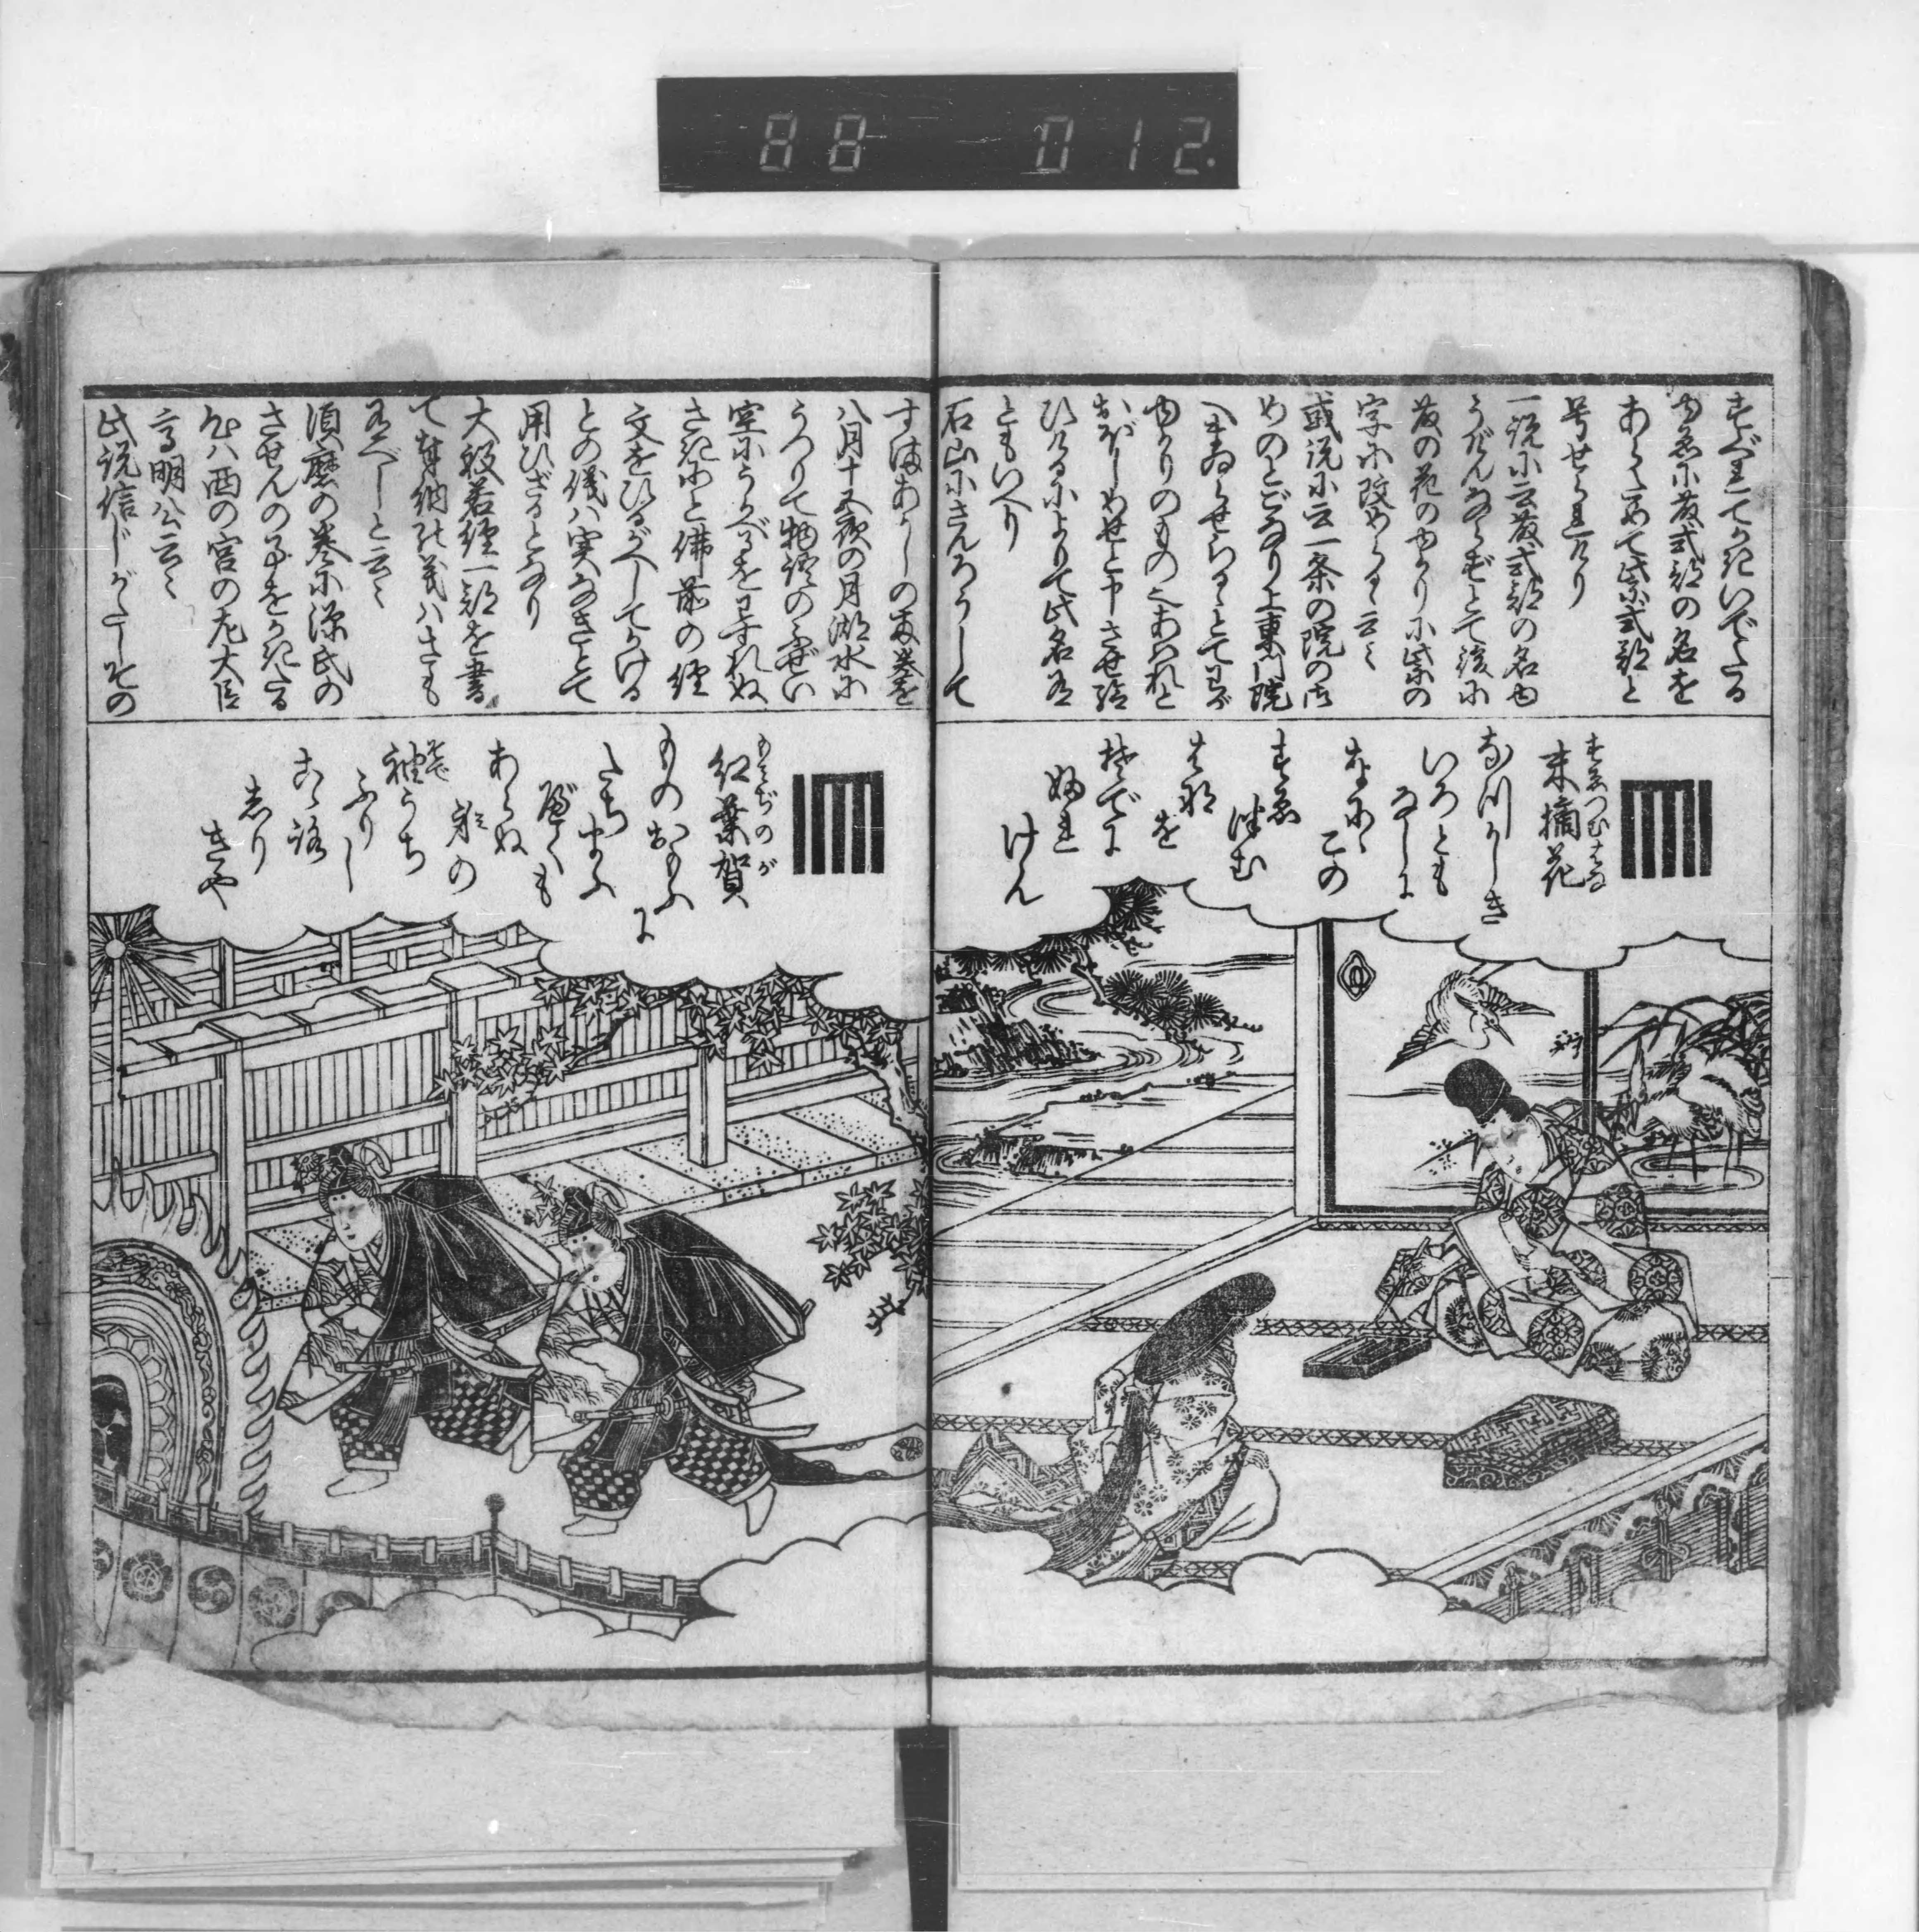 88 012.
すぐれてかきいでたる
ゆゑに藤式部の名を
あらためて紫式部と
号せられけり
一説に云藤式部の名ゆ
うげんならずとて後に
藤の花のゆかりに紫の
字に改めらると云々
或説に云一条の院の御
めのとごなり上東門院
へまゐらせらるゝとてわが
ゆかりのものゝあはれと
おぼしめせと申させ給
ひけるによりて此名有
ともいへり
石山にさんろうして
すまあかしの両巻を
八月十五夜の月湖水に
うつりて物語のふぜい
空にうかべるをわすれぬ
さきにと佛前の経
文をひるがへしてかける
との儀ハ実なきとて
用ひざるとなり
大般若経一部を書
て奉納の義ハさも
有べしと云々
須磨の巻に源氏の
させんの事をかきたる
心ハ西の宮の左大臣
高明公云々
此説信じがたしその
すゑつむはな
末摘花
なつかしき
いろとも
なしに
なにゝ
この
すゑ
つむ
はな
を
そでに
ふれ
けん
もみぢのが
紅葉賀
ものおもふ
に
たち
まふ
べくも
あらぬ
身の
そで
袖うち
ふりし
こゝろ
しり
きや